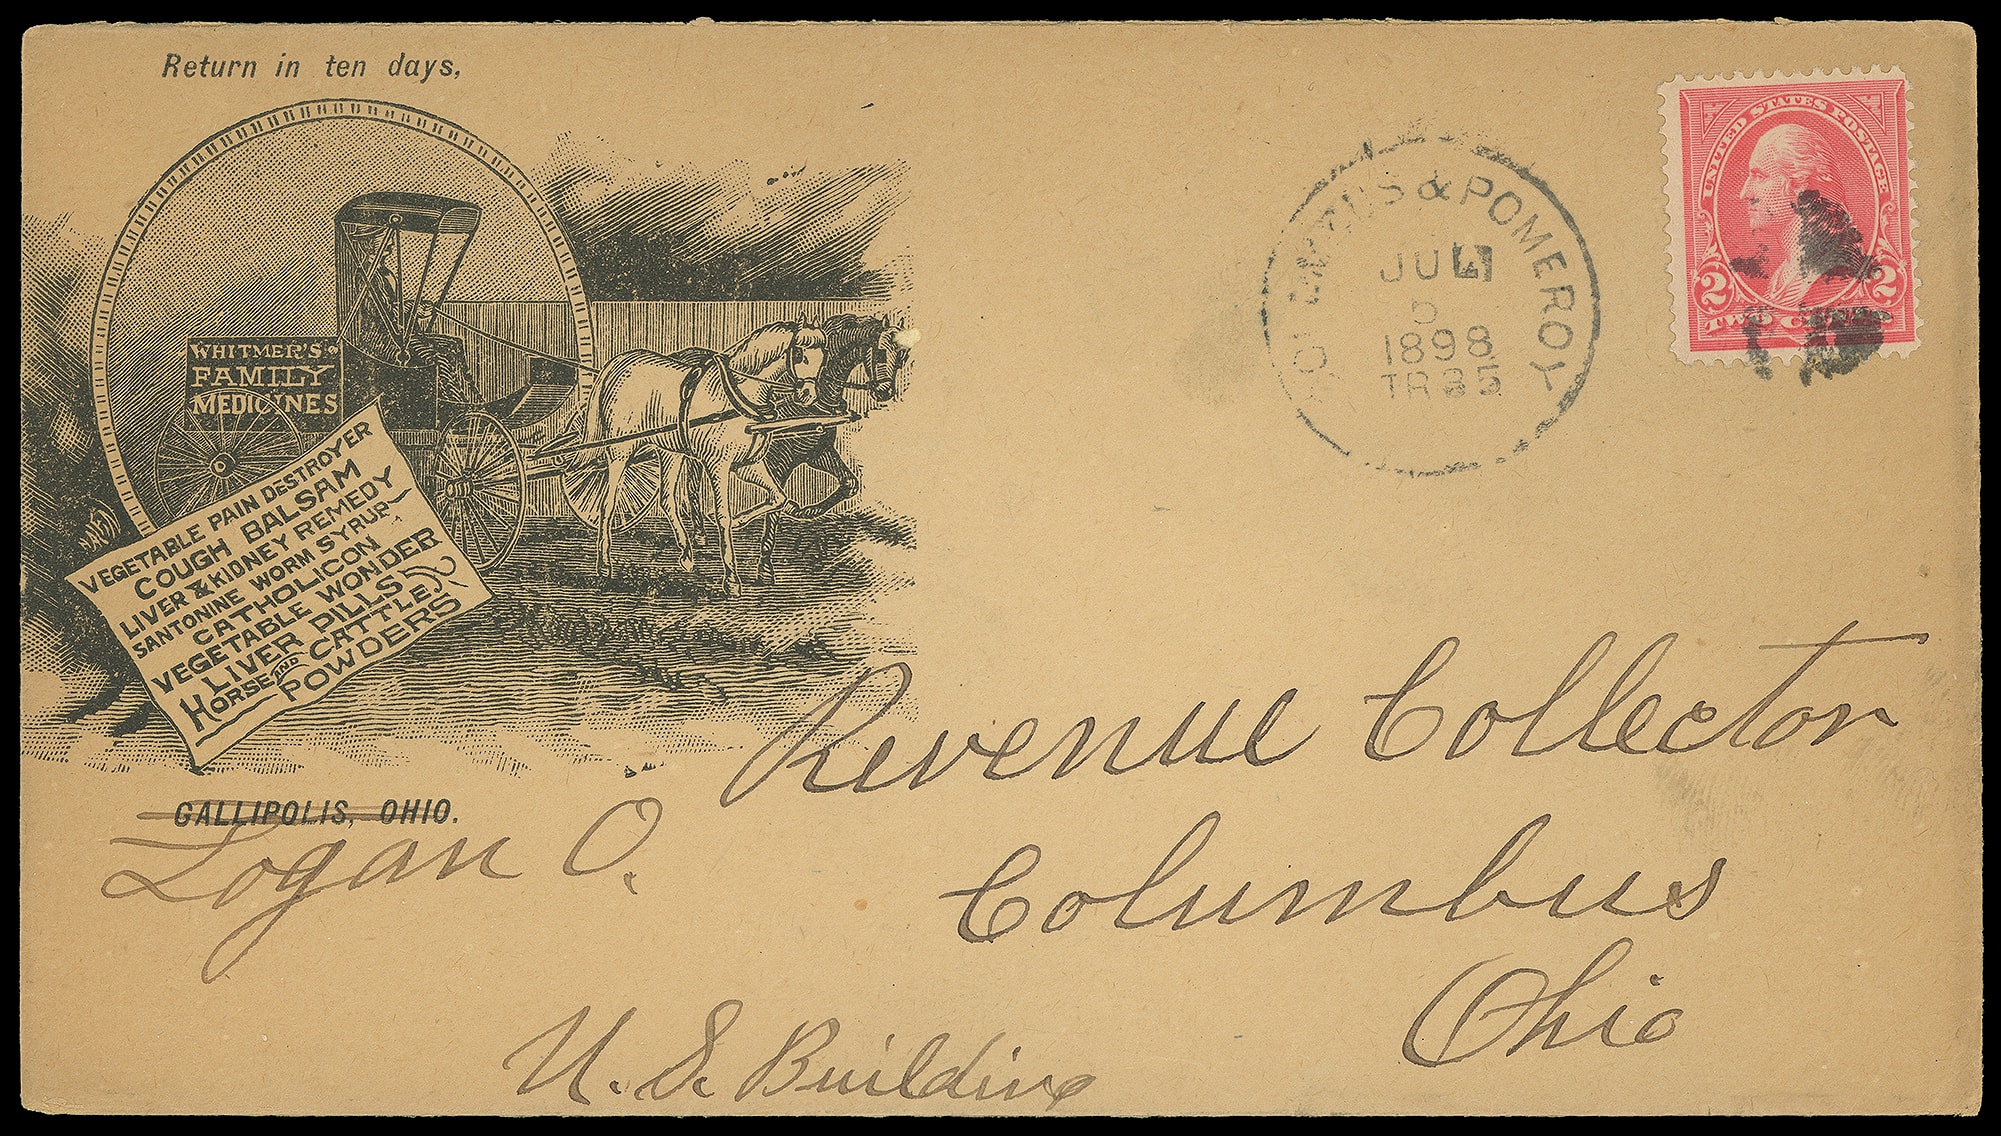 Return in ten days,
WHITMER'S
FAMILY
MEDICINES
VEGETABLE PAIN DESTROYER
COUGH BALSAM
LIVER & KIDNEY REMEDY
SANTONINE WORM SYRUP
CATHOLICON
VEGETABLE WONDER
LIVER PILLS
HORSE AND CATTLE
POWDERS
GALLIPOLIS, OHIO.
Logan O.
& POMEROY
JUL
5
1898
UNITED STATES POSTAGE
2 2
TWO
Revenue Collector
Columbus
Ohio
U. S. Building